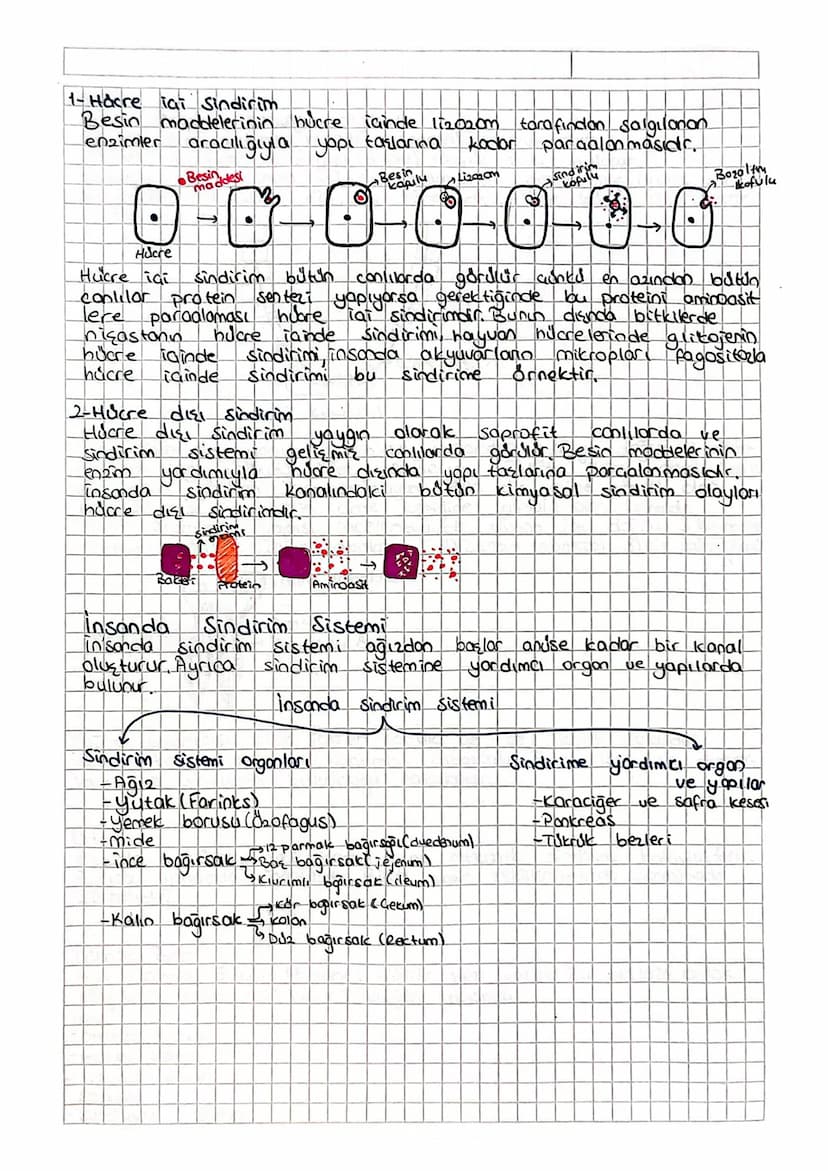 1-Hücre içi sindirim
Besin maddelerinin hücre içinde lizozom tarafından salgılanan
enzimler aracılığıyla yapı taşlarına kadar parçalanmasıdır.
Besin maddesi
Besin kofulu
Lizozom
Sindirim kofulu
Boşaltım kofulu
Hücre
Hücre içi sindirim bütün canlılarda görülür çünkü en azından bütün
canlılar protein sentezi yapıyorsa gerektiğinde bu proteini aminoasit
lere parçalaması hücre içi sindirimdir. Bunun dışında bitkilerde
nişastanın hücre içinde sindirimi, hayvan hücrelerinde glikojenin
hücre içinde sindirimi, insanda akyuvarların mikropları fagositozla
hücre içinde sindirimi bu sindirime örnektir.
2-Hücre dışı sindirim
Hücre dışı sindirim yaygın olarak saprofit canlılarda ve
sindirim sistemi gelişmiş canlılarda görülür. Besin maddelerinin
enzim yardımıyla hücre dışında yapı taşlarına parçalanmasıdır.
İnsanda sindirim kanalındaki bütün kimyasal sindirim olayları
hücre dışı sindirimdir.
Sindirim
Bakteri Protein Aminoasit
İnsanda Sindirim Sistemi
İnsanda sindirim sistemi ağızdan başlar anüse kadar bir kanal
oluşturur. Ayrıca sindirim sistemine yardımcı organ ve yapılarda
bulunur.
İnsanda sindirim sistemi
Sindirim sistemi organları
-Ağız
-Yutak (Farinks)
-Yemek borusu (Özofagus)
-Mide
-İnce bağırsak
12 parmak bağırsağı (duedenum)
Boş bağırsak (jejenum)
Kıvrımlı bağırsak (ileum)
-Kalın bağırsak
Kör bağırsak (Çekum)
kolon
Düz bağırsak (Rectum)
Sindirime yardımcı organ
ve yapılar
-Karaciğer ve safra kesesi
-Pankreas
-Tükrük bezleri